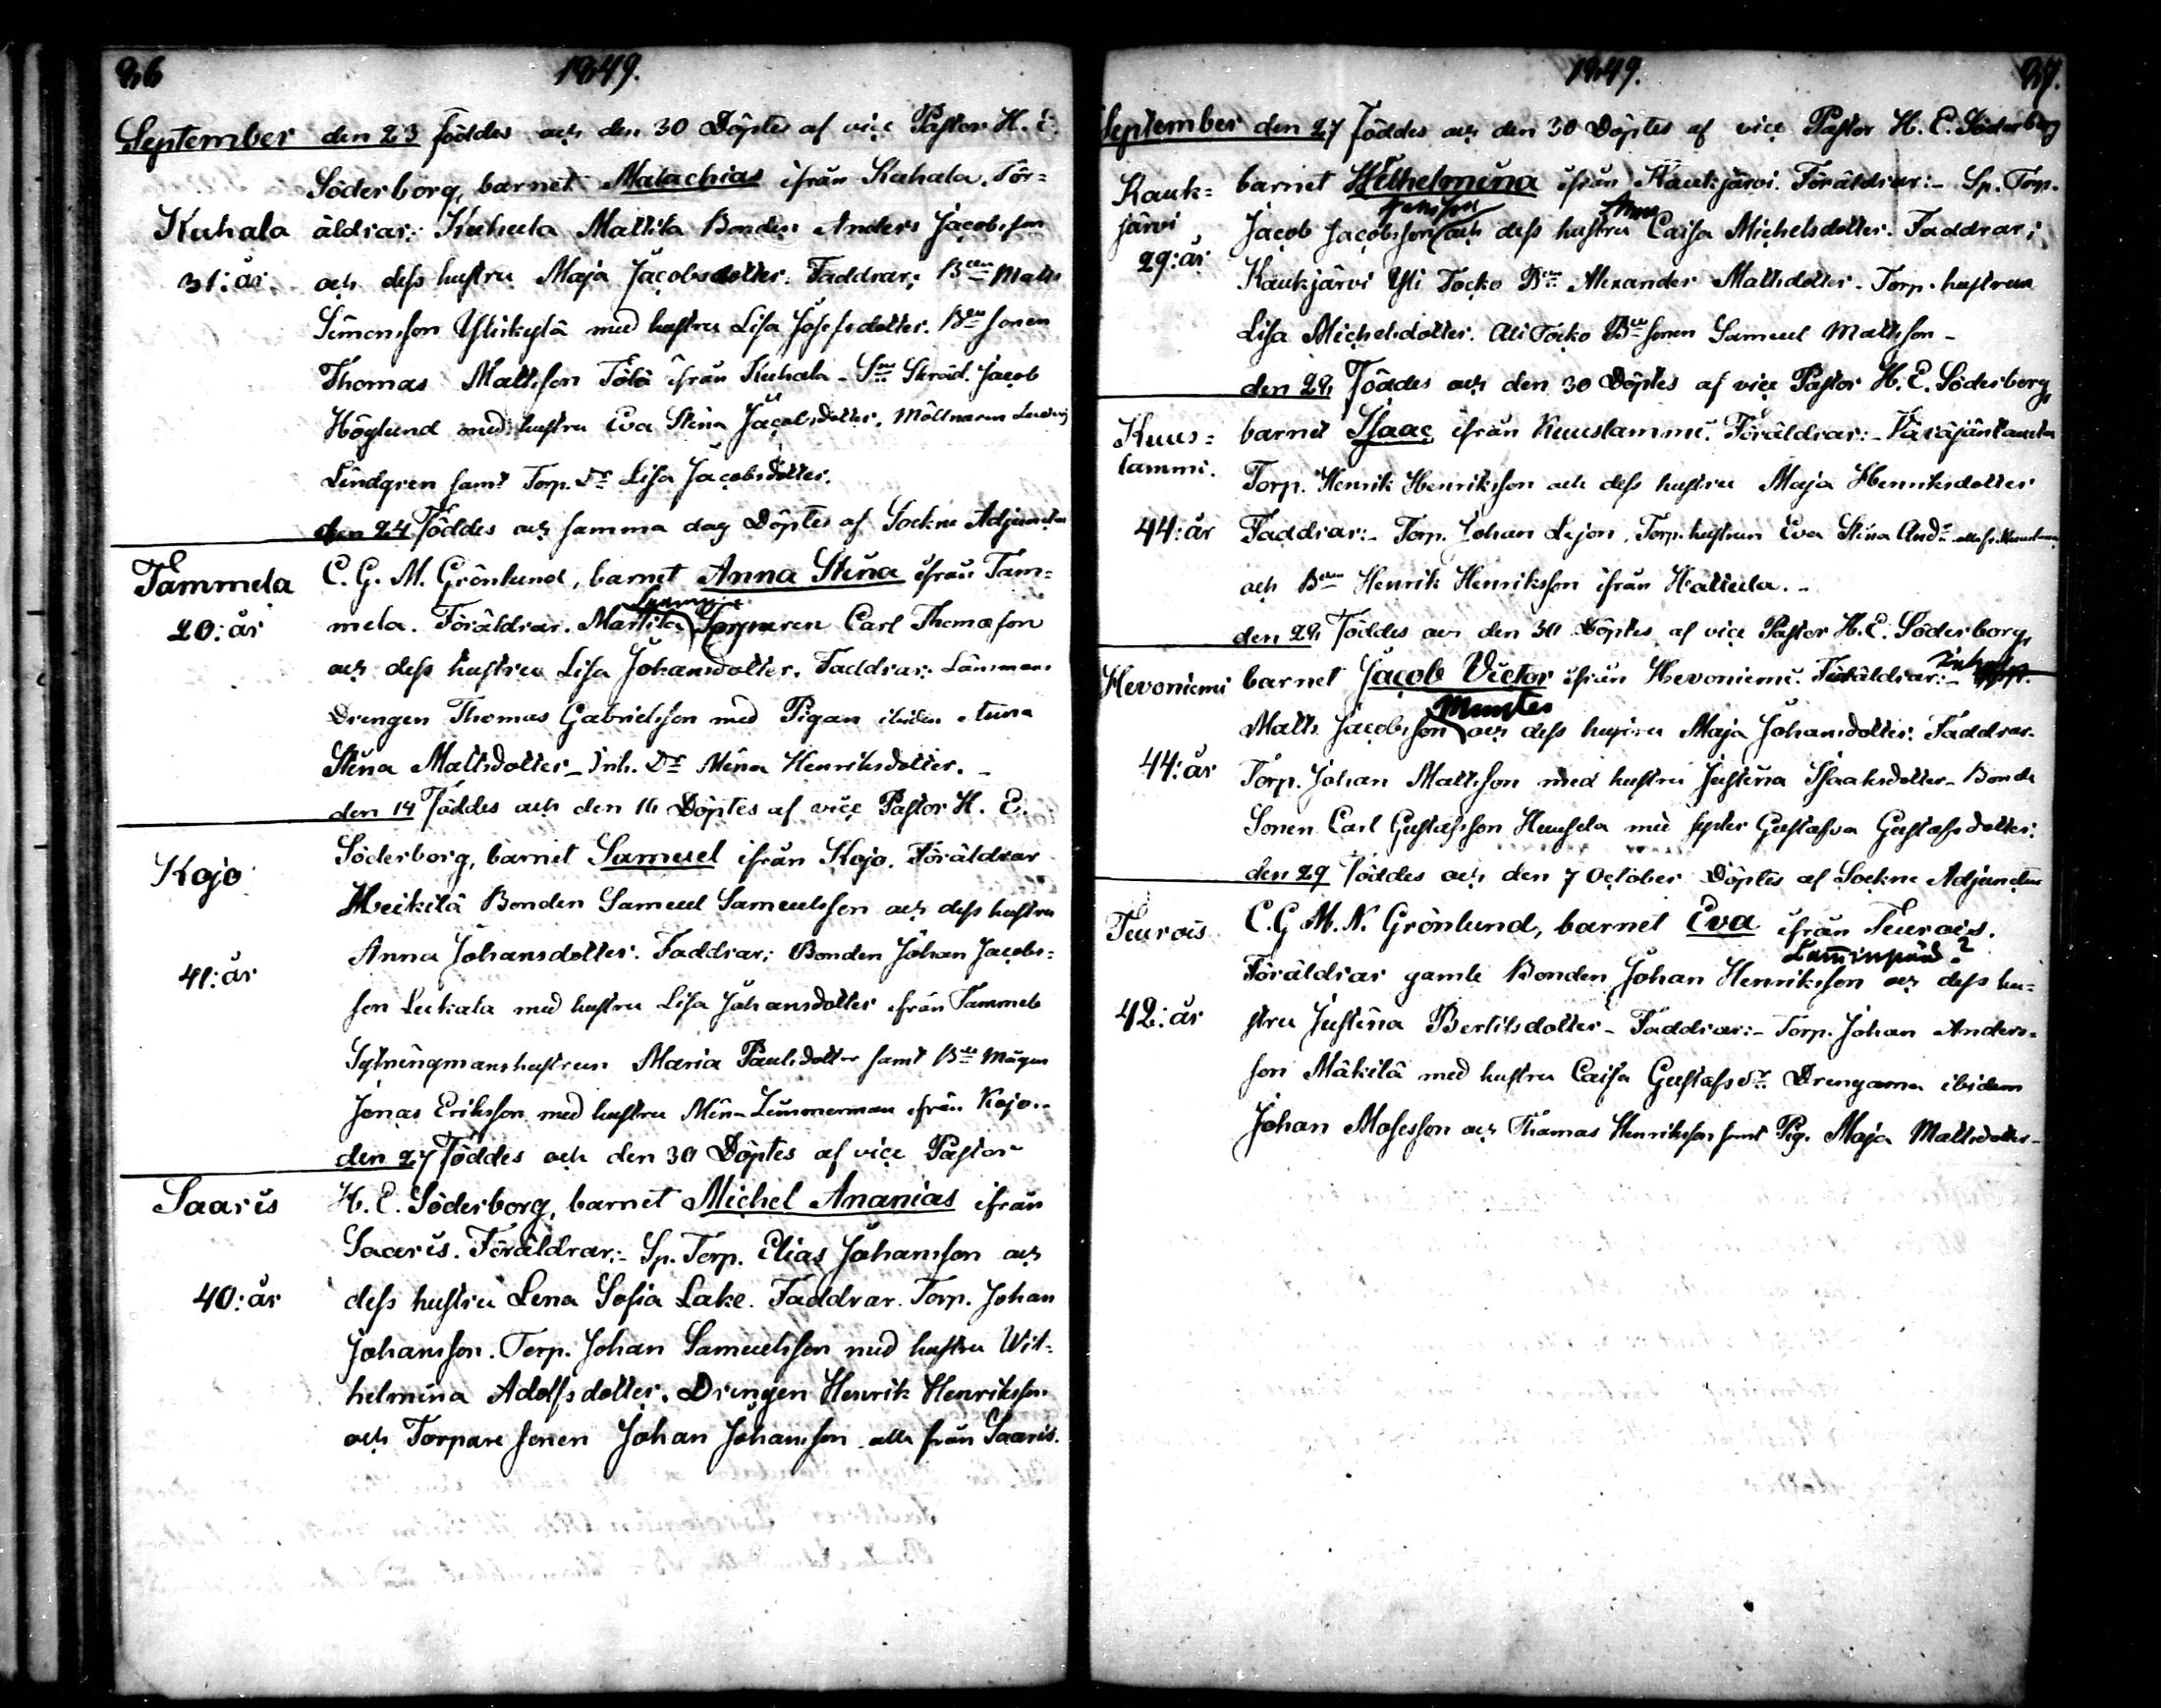 86 1849.
September den 23 föddes och den 30 Döptes af vice Pastor H. E.
Söderborg, barnet Malachias ifrån Kuhala. För=
Kuhala äldrar: Kuhala Mattila Bonden Anders Jacobsson
31: år. och dess hustru Maja Jacobsdotter. Faddrar: Bden Matts
Simonsson Ylikylä med hustru Lisa Josefsdotter. Bde sonen
Thomas Mattsson Tölö ifrån Kuhala - Sne Skräd. Jacob
Höglund med hustru Eva Stina Jacobsdotter. Möllnaren Ludvig
Lindgren samt Torp. Dr Lisa Jacobsdotter.
den 24 Föddes och samma dag Döptes af Sockne Adjuncten
Tammela C. G. M. Grönlund, barnet Anna Stina ifrån Tam=
20: år mela. Föräldrar. Mattila Torparen Carl Thomasson
och dess hustru Lisa Johansdotter. Faddrar: Länsmans
Drengen Thomas Gabrielsson med Pigan ibidem
Stina Mattsdotter - Inh. Dr Mina Henriksdotter. -
den 14 Föddes och den 16 Döptes af vice Pastor H. E.
Kojo Söderborg, barnet Samuel ifrån Kojo. Föräldrar
Heikilä Bonden Samuel Samuelsson och dess hustru
41: år Anna Johansdotter. Faddrar: Bonden Johan Jacobs=
son Leikala med hustru Lisa Johansdotter ifrån Tammela
Sytningmanshustrun Maria Paulsdotter samt Bde Mågen
Jonas Eriksson med hustru Mina Zimmerman ifrån Kojo. -
den 27 Föddes och den 30 Döptes af vice Pastor
Saaris H. E. Söderborg, barnet Michel Ananias ifrån
Saaris. Föräldrar: - Sp. Torp. Elias Johansson och
40: år dess hustru Lena Sofia Lake. Faddrar. Torp. Johan
Johansson. Torp. Johan Samuelsson med hustru Wil=
helmina Adolfsdotter. Drengen Henrik Henriksson
och Torpare sonen Johan Johansson alla från Saaris.
1849. 87.
September den 27 föddes och den 30 Döptes af vice Pastor H. E. Söderborg
Kauk= barnet Wilhelmina ifrån Kaukjärvi. Föräldrar: - Sp. Torp.
järvi Jacob Jacobsson och dess hustru Caisa Michelsdotter. Faddrar;
29: år Kaukjärvi Yli Tocko Bden Alexander Mattsdotter. Torp. hustrun
Lisa Michelsdotter. Ali Tocko Bde sonen Samuel Mattsson -
den 28 Föddes och den 30 Döptes af vice Pastor H. E. Söderborg,
Kuus= barnet Isaac ifrån Kuuslammi. Föräldrar: -
lammi. Torp. Henrik Henriksson och dess hustru Maja Henriksdotter
44: år Faddrar: - Torp. Johan Lejon, Torp. hustrun Eva Stina
och Bden Henrik Henriksson ifrån Hattula. -
den 28 Föddes och den 30 Döptes af vice Pastor H. E. Söderborg,
Hevoniemi barnet Jacob Victor ifrån Hevoniemi. Föräldrar: - Inh.
Munter
Matts Jacobsson och dess hustru Maja Johansdotter. Faddrar.
44: år Torp. Johan Mattsson med hustru Justina Isaaksdotter - Bonde
Sonen Carl Gustafsson med syster Gustafva Gustafsdotter.
den 29 Föddes och den 7 October Döptes af Sockne Adjuncten
Teurois C. G. M. N. Grönlund, barnet Eva ifrån Teurois.
Lamminpää?
Föräldrar gamle Bonden Johan Henriksson och dess hu=
42: år stru Justina Bertilsdotter - Faddrar: - Torp. Johan Anders=
son Mäkilä med hustru Caisa Gustafsdr. Drengarna ibidem
Johan Mosesson och Thomas Henriksson samt Pig. Maja Mattsdotter -